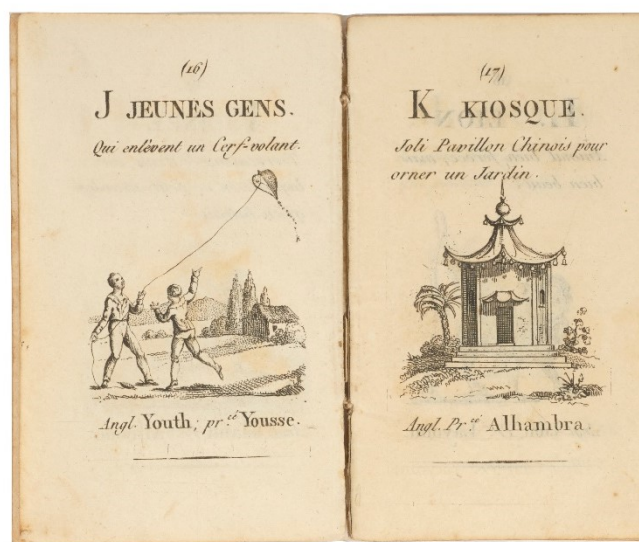 (16)
J JEUNES GENS.
Qui enlèvent un Cerf-volant.
Angl. Youth; pr.cé Yousse.
(17)
K KIOSQUE.
Joli Pavillon Chinois pour
orner un Jardin.
Angl. Pr.cé Alhambra.